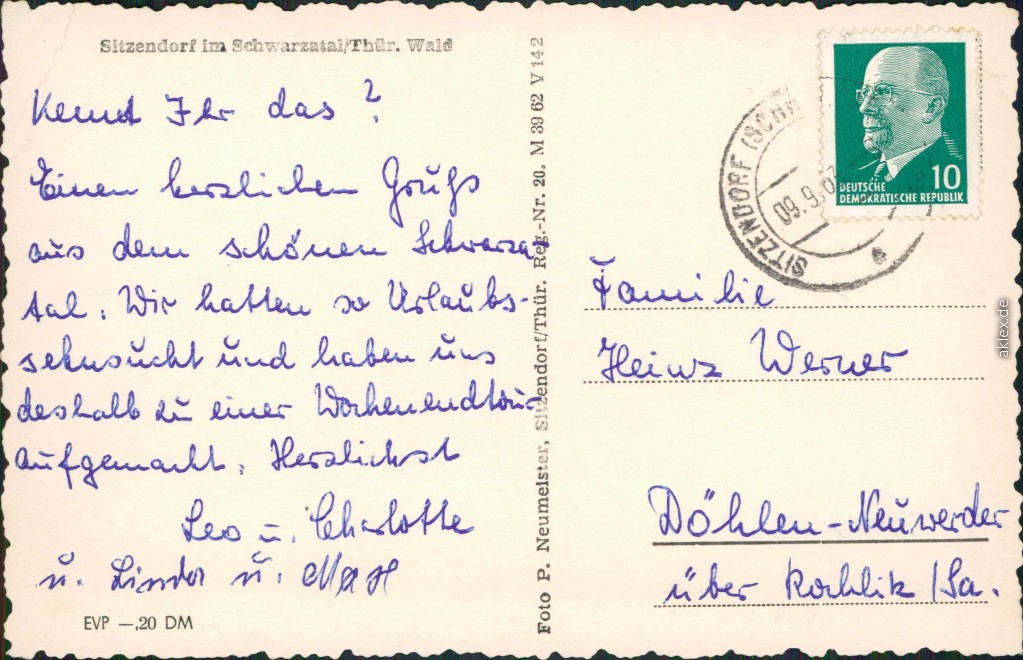 Sitzendorf im Schwarzatal/Thür. Wald
Kennt Ihr das?
Einen herzlichen Gruß
aus dem schönen Schwarza-
tal. Wir hatten so Urlaubs-
sehnsucht und haben uns
deshalb zu einer Wochenendtour
aufgemacht. Herzlichst
Leo u. Charlotte
u. Linda u. Max
EVP —,20 DM
Foto P. Neumeister, Sitzendorf/Thür. Reg.-Nr. 20. M 39 62 V 142
SITZENDORF (SCHW
09.9.63
DEUTSCHE 10
DEMOKRATISCHE REPUBLIK
Familie
Heinz Werner
Döhlen-Neuwerder
über Rochlitz/Sa.
aklex.de